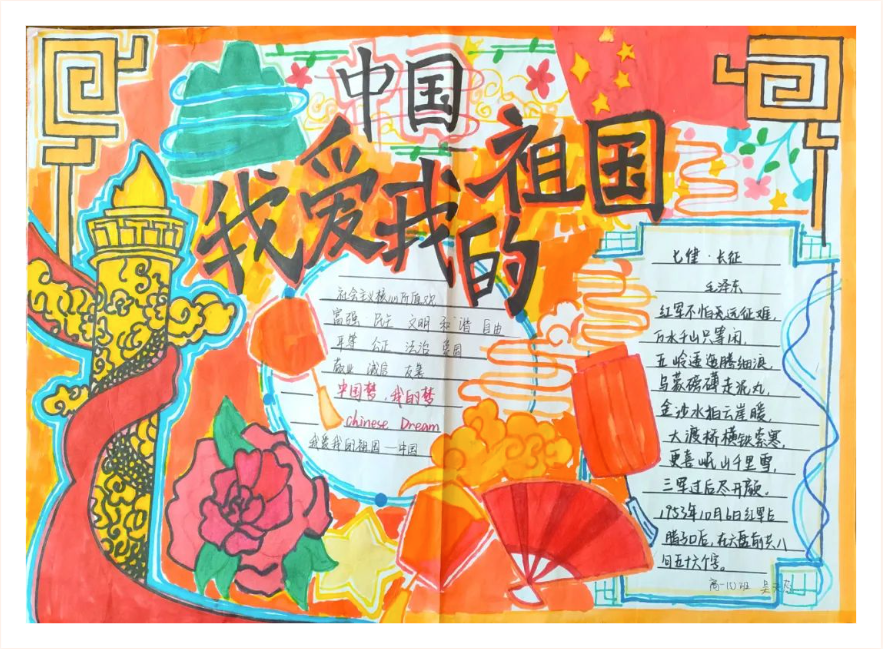 中国
我爱我的祖国
社会主义核心价值观
富强 民主 文明 和谐 自由
平等 公正 法治 爱国
敬业 诚信 友善
中国梦,我的梦
Chinese Dream
我爱我的祖国一中国
七律·长征
毛泽东
红军不怕远征难,
万水千山只等闲,
五岭逶迤腾细浪,
乌蒙磅礴走泥丸,
金沙水拍云崖暖,
大渡桥横铁索寒,
更喜岷山千里雪,
三军过后尽开颜。
1953年10月6日红军占
腊子口后,在六盘
五十六个字。
高一(1)班